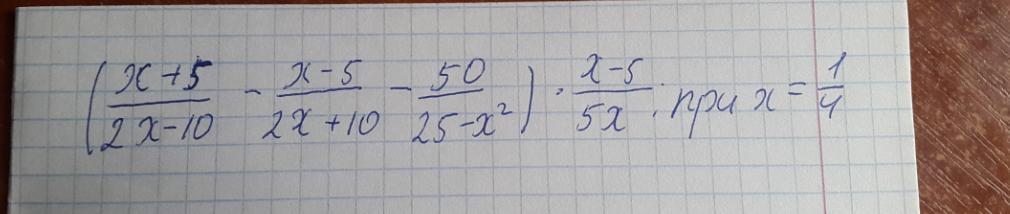 ( (x+5)/(2x-10) - (x-5)/(2x+10) - 50/(25-x²) ) · (x-5)/(5x) ; при x = 1/4